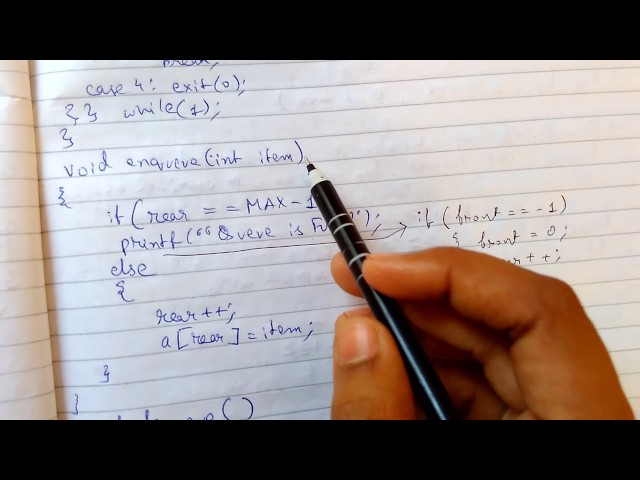 case 4: exit(0);
} } while(1);
}
void enqueue(int item)
{
if (rear == MAX-1
printf("Queue is Fu ");
else
{
rear++;
a[rear]=item;
}
}
()
if (front == -1)
{ front = 0;
++;